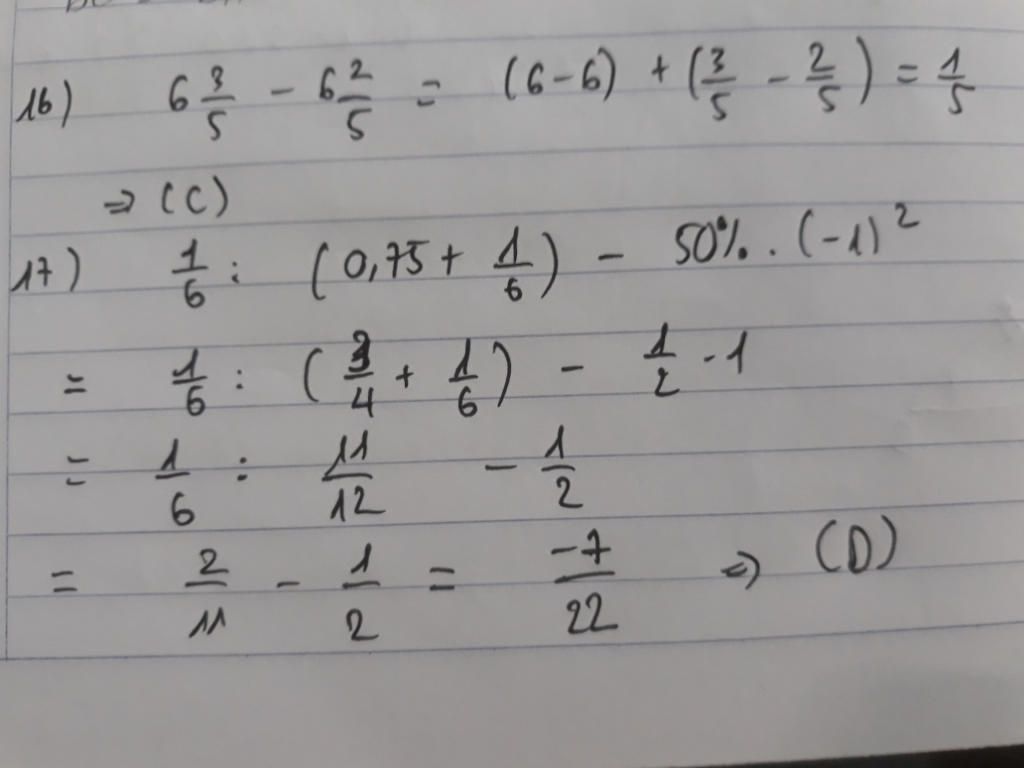 16) 6 3/5 - 6 2/5 = (6-6) + (3/5 - 2/5) = 1/5
⇒ (C)
17) 1/6 : (0,75 + 1/6) - 50% . (-1)²
= 1/6 : (3/4 + 1/6) - 1/2 . 1
= 1/6 : 11/12 - 1/2
= 2/11 - 1/2 = -7/22 ⇒ (D)